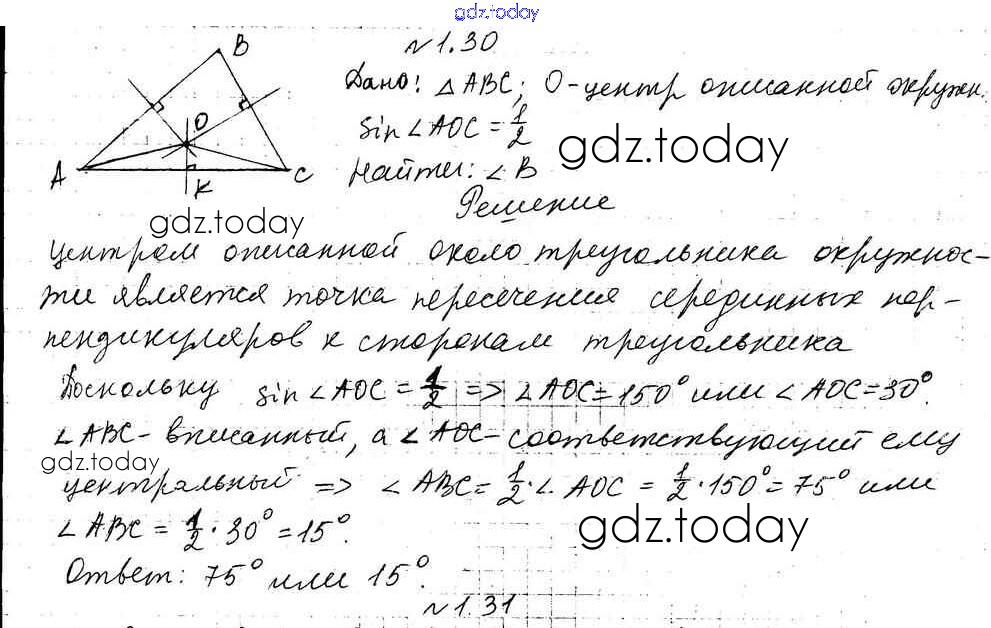 gdz.today
№1.30
B
Дано: △ABC; O-центр описанной окружн.
O
sin∠AOC = 1/2
gdz.today
A
K
C
Найти: ∠B
gdz.today
Решение
Центром описанной около треугольника окружнос-
ти является точка пересечения серединных пер-
пендикуляров к сторонам треугольника
Поскольку sin∠AOC = 1/2 => ∠AOC = 150° или ∠AOC = 30°.
∠ABC - вписанный, а ∠AOC - соответствующий ему
gdz.today
центральный => ∠ABC = 1/2 · ∠AOC = 1/2 · 150° = 75° или
∠ABC = 1/2 · 30° = 15°.
gdz.today
Ответ: 75° или 15°.
№1.31